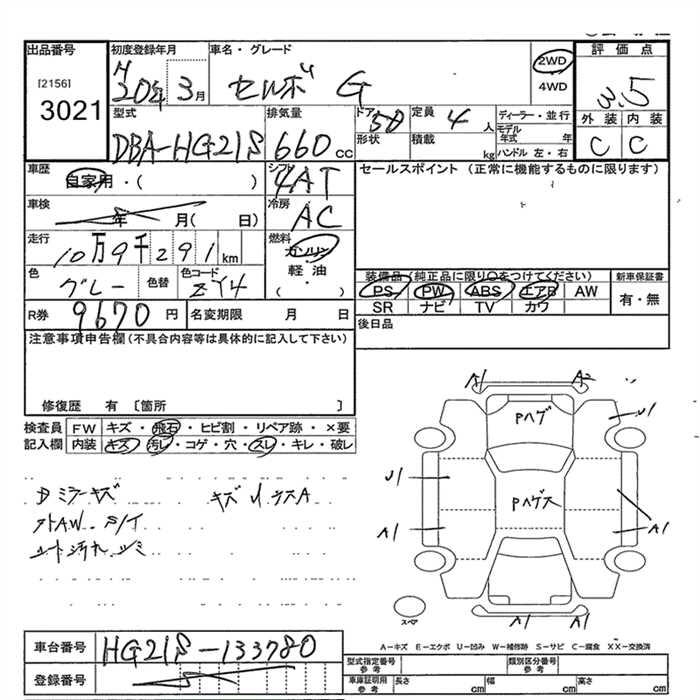 出品番号
[2156]
3021
初度登録年月
H
20年 3月
車名・グレード
セルボ G
2WD
4WD
評価点
3.5
外装 内装
C C
型式
DBA-HG21S
排気量
660 CC
ドア 5D
形状
定員 4 人
積載 kg
ディーラー・並行
モデル年式 年
ハンドル 左・右
車歴
自家用・( )
シフト
4AT
車検
年 月( 日)
冷房
AC
走行
10万9千291km
燃料
ガソリン
軽・油
( ・ )
色
グレー
色替
色コード
ZY4
R券
9670 円
名変期限 月 日
セールスポイント (正常に機能するものに限ります)
装備品(純正品に限り○をつけてください)
PS PW ABS エアB AW
SR ナビ TV カワ
新車保証書
有・無
後日品
注意事項申告欄(不具合内容等は具体的に記入して下さい)
修復歴 有 〔箇所 〕
検査員
記入欄
FW キズ・飛石・ヒビ割・リペア跡・×要
内装 キズ・汚レ・コゲ・穴・スレ・キレ・破レ
Dミラーキズ
A1 A2
Pハゲ
U1
U1
Pハゲス
A1
A1
A1 A1
スペア
A-キズ E-エクボ U-凹み W-補修跡 S-サビ C-腐食 XX-交換済
車台番号
HG21S-133780
登録番号
型式指定番号
参考
類別区分番号
参考
車庫証明用
参考
長さ cm 幅 cm 高さ cm